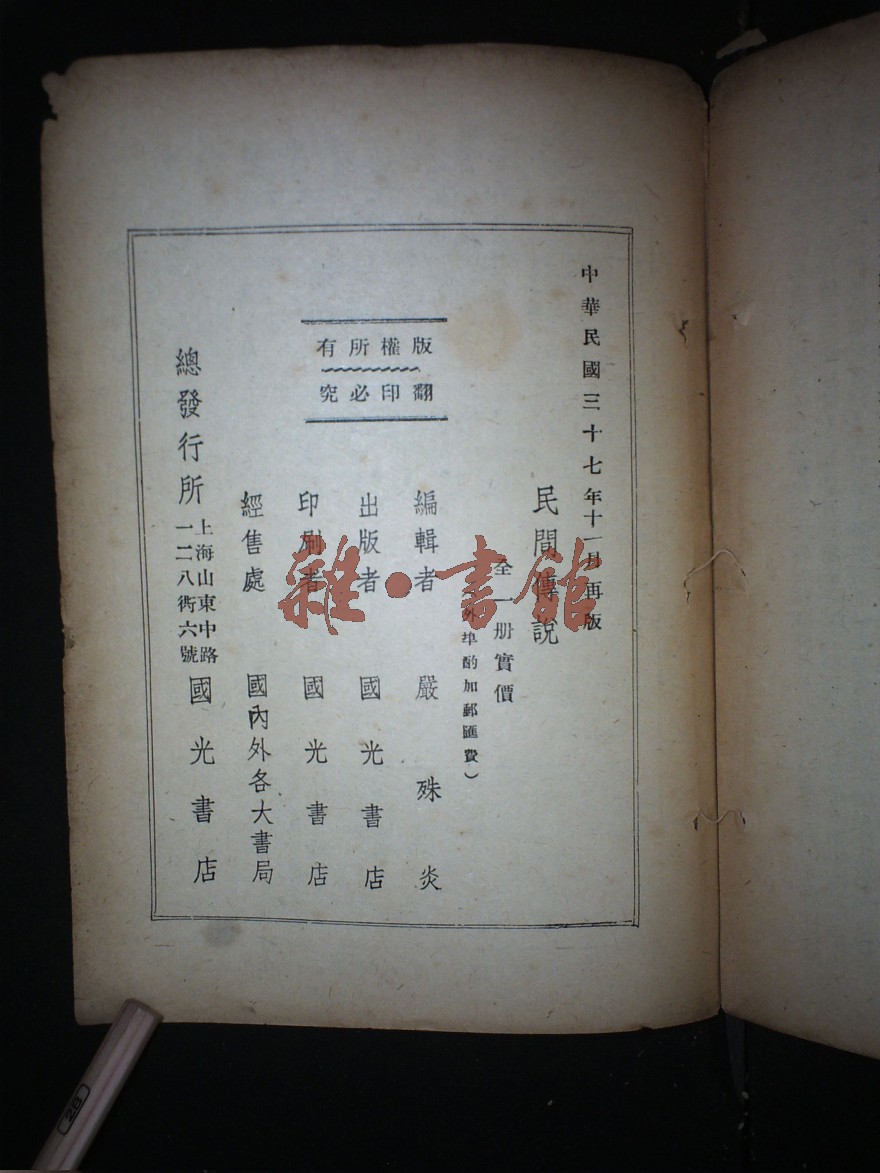 中華民國三十七年十一月再版
民間傳說
全一册實價
外埠酌加郵匯費）
版權所有
翻印必究
編輯者 嚴殊炎
出版者 國光書店
印刷者 國光書店
經售處 國內外各大書局
總發行所 上海山東中路
一二八衖六號 國光書店
雜·書館
2B